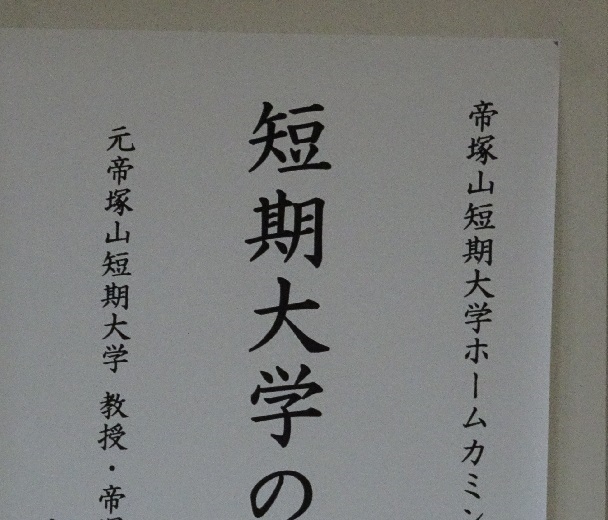 帝塚山短期大学ホームカミン
短期大学の
元帝塚山短期大学 教授・帝